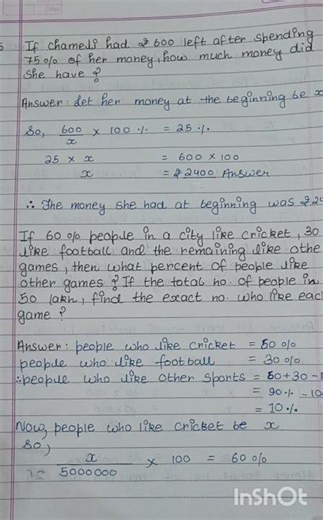 5 If chameli had ₹ 600 left after spending
75% of her money, how much money did
she have ?
Answer: Let her money at the beginning be x
So, 600/x × 100 % = 25 %
25 × x = 600 × 100
x = ₹ 2400 Answer
∴ The money she had at beginning was ₹ 24
If 60% people in a city like cricket, 30
like football and the remaining like othe
games, then what percent of people like
other games ? If the total no. of people in
50 lakh, find the exact no. who like eac
game ?
Answer: people who like cricket = 60 %
people who like football = 30 %
∴ people who like other sports = 60 + 30 - 1
= 90 % - 10
= 10 %
Now, people who like cricket be x
So,
x/5000000 × 100 = 60 %
InShOt